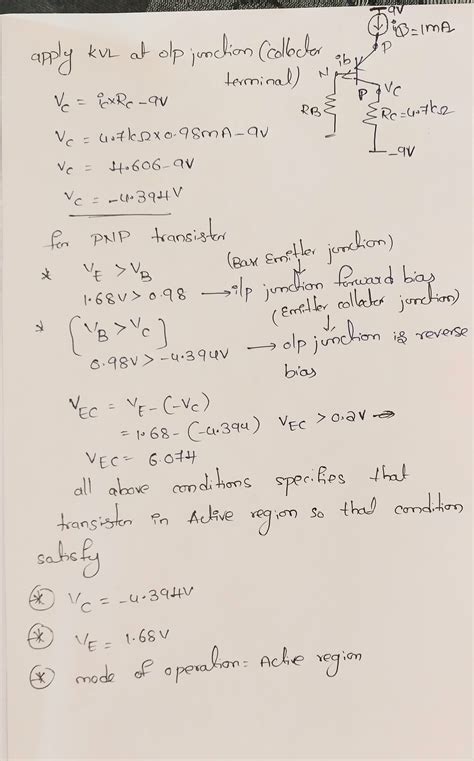 9V
iE=1mA
P
apply KVL at o/p junction (collector
terminal)
ib
N
P
VC
RB
RC=4.7kΩ
-9V
VC = iC×RC - 9V
VC = 4.7kΩ×0.98mA-9V
VC = 4.606-9V
VC = -4.394V
for PNP transistor
* VE > VB (Base Emitter junction)
1.68V > 0.98 → i/p junction forward bias
(Emitter collector junction)
* [VB > VC]
0.98V > -4.394V → o/p junction is reverse
bias
VEC = VE - (-VC)
= 1.68 - (-4.394) VEC > 0.2V →
VEC = 6.074
all above conditions specifies that
transistor in Active region so that condition
satisfy
* VC = -4.394V
* VE = 1.68V
* mode of operation= Active region